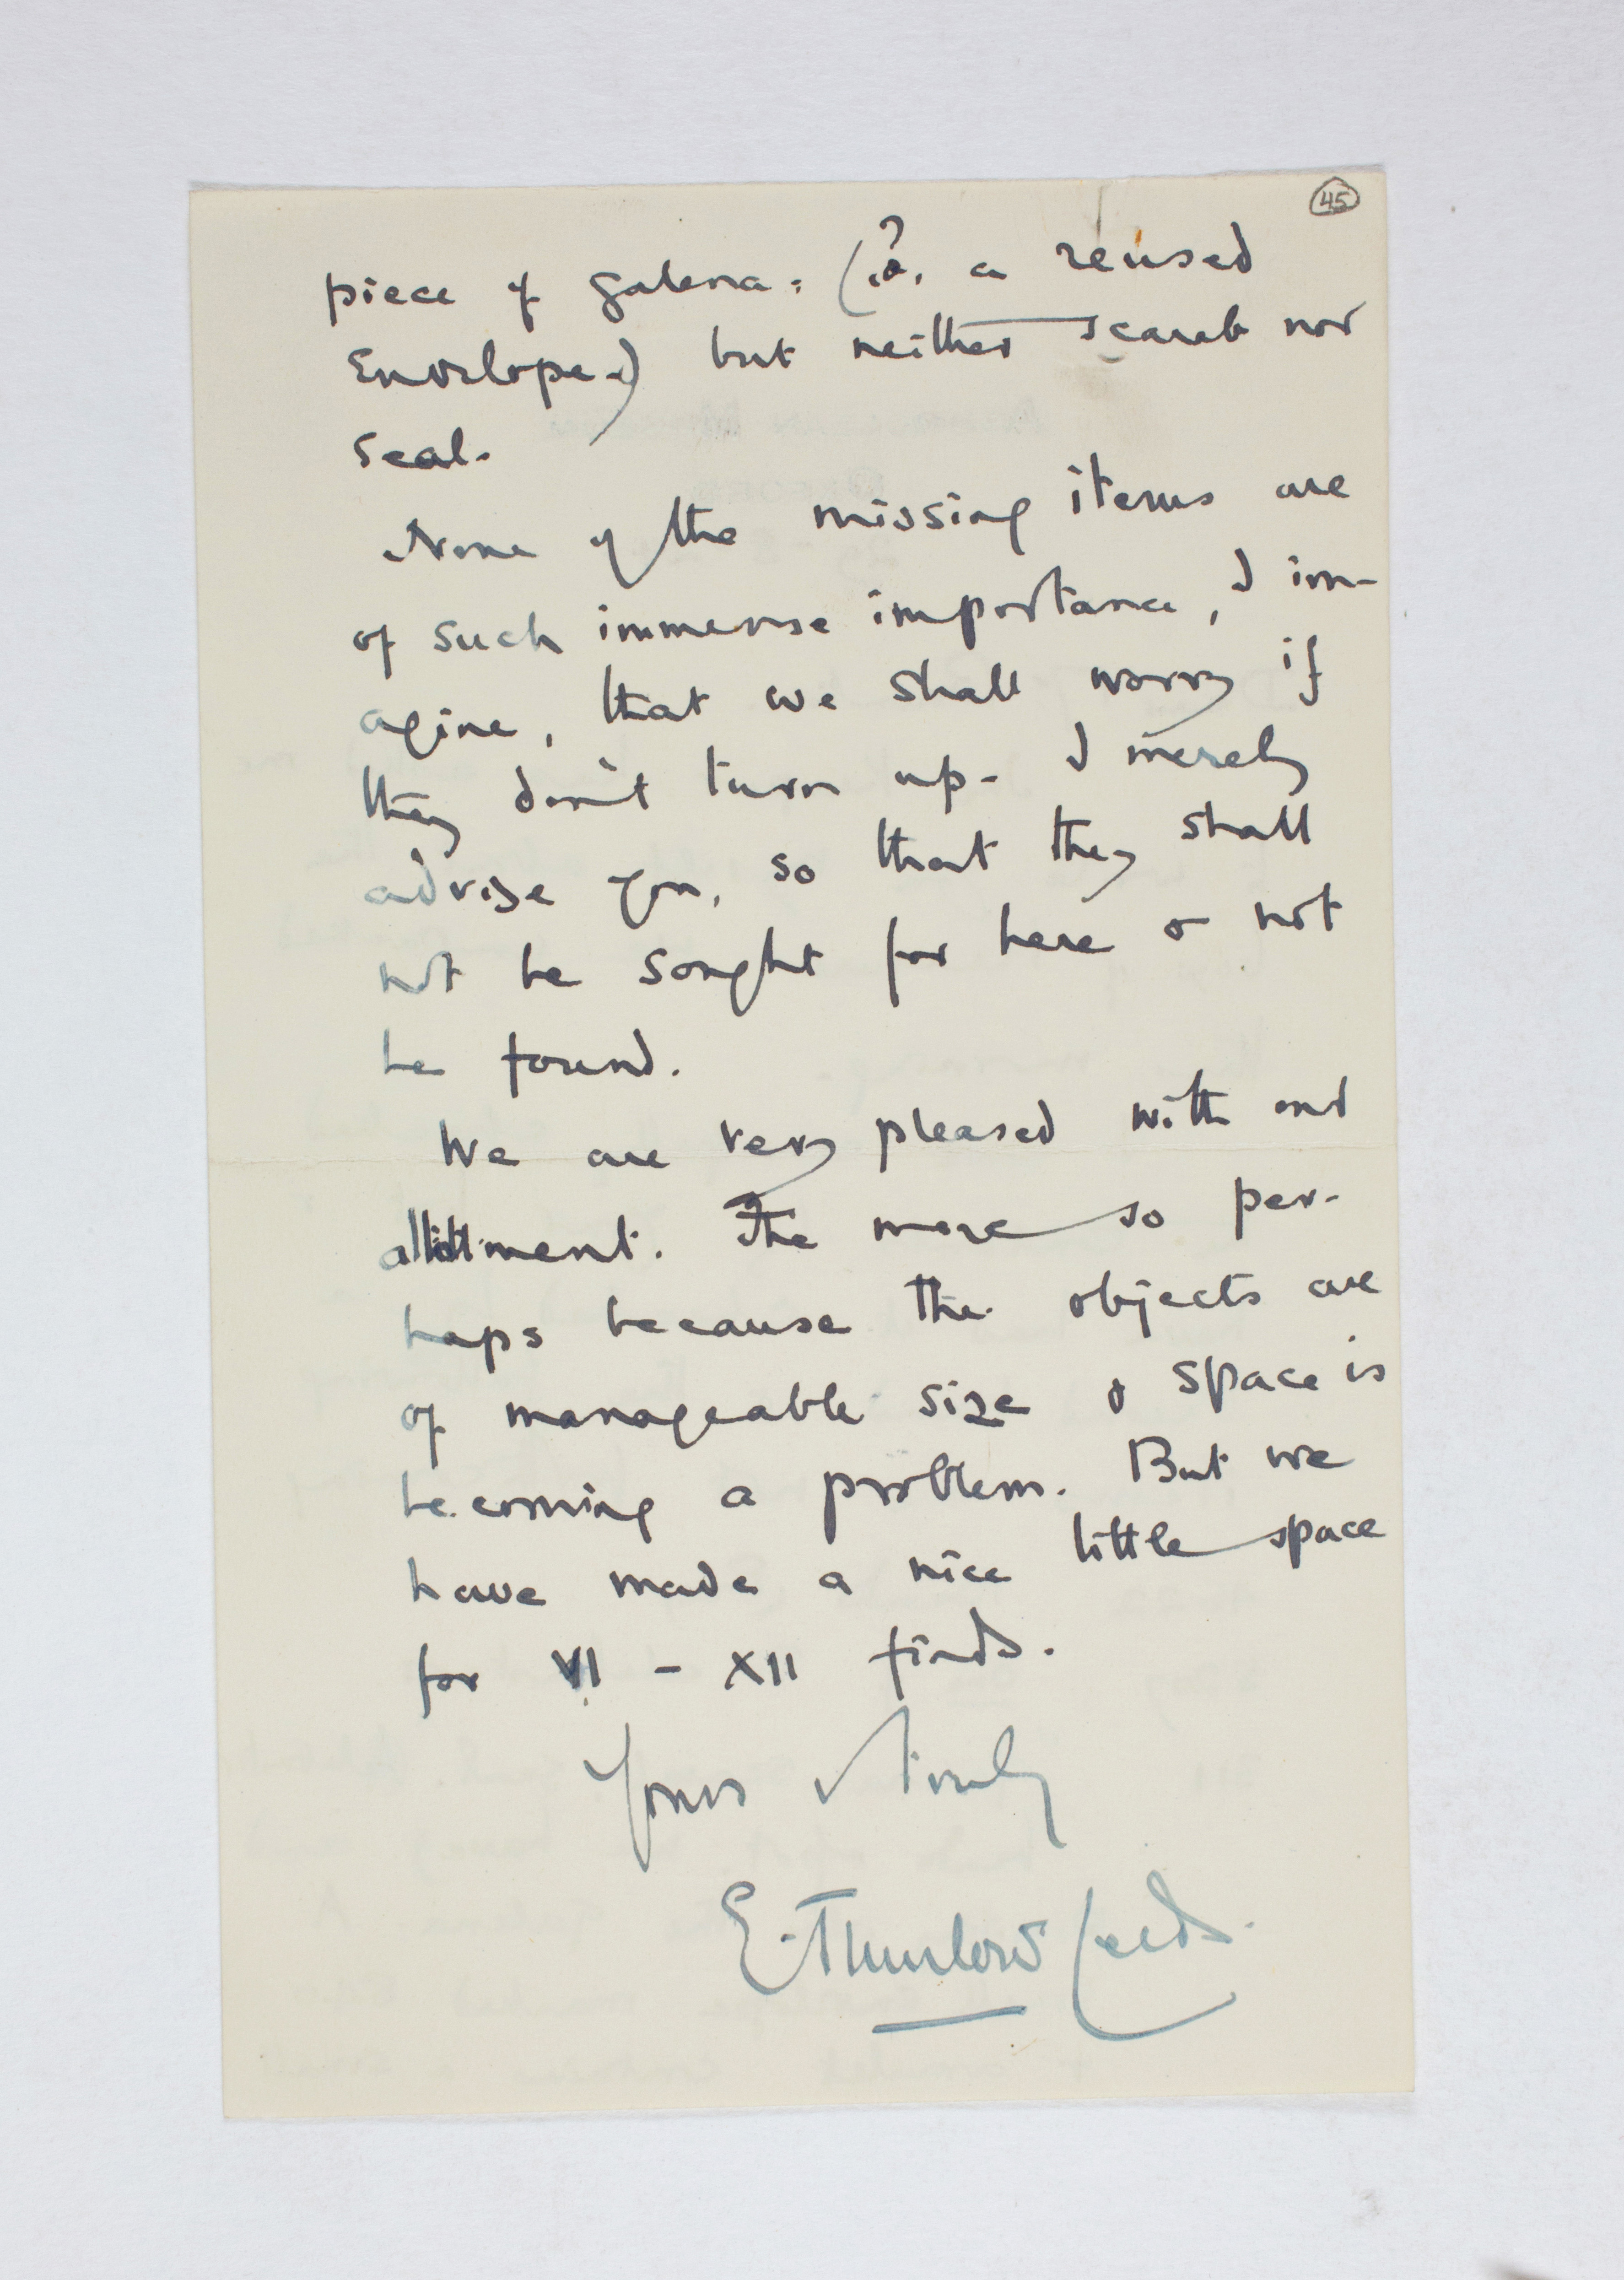 45
piece of galena: (? a reused
Envelope.) but neither scarab nor
seal.
None of the missing items are
of such immense importance, I im-
agine, that we shall worry if
they don't turn up. I merely
advise you, so that they shall
not be sought for here & not
be found.
We are very pleased with our
allotment. The more so per-
haps because the objects are
of manageable size & space is
becoming a problem. But we
have made a nice little space
for VI - XII finds.
Yours sincerely
E. Thurlow Leeds.